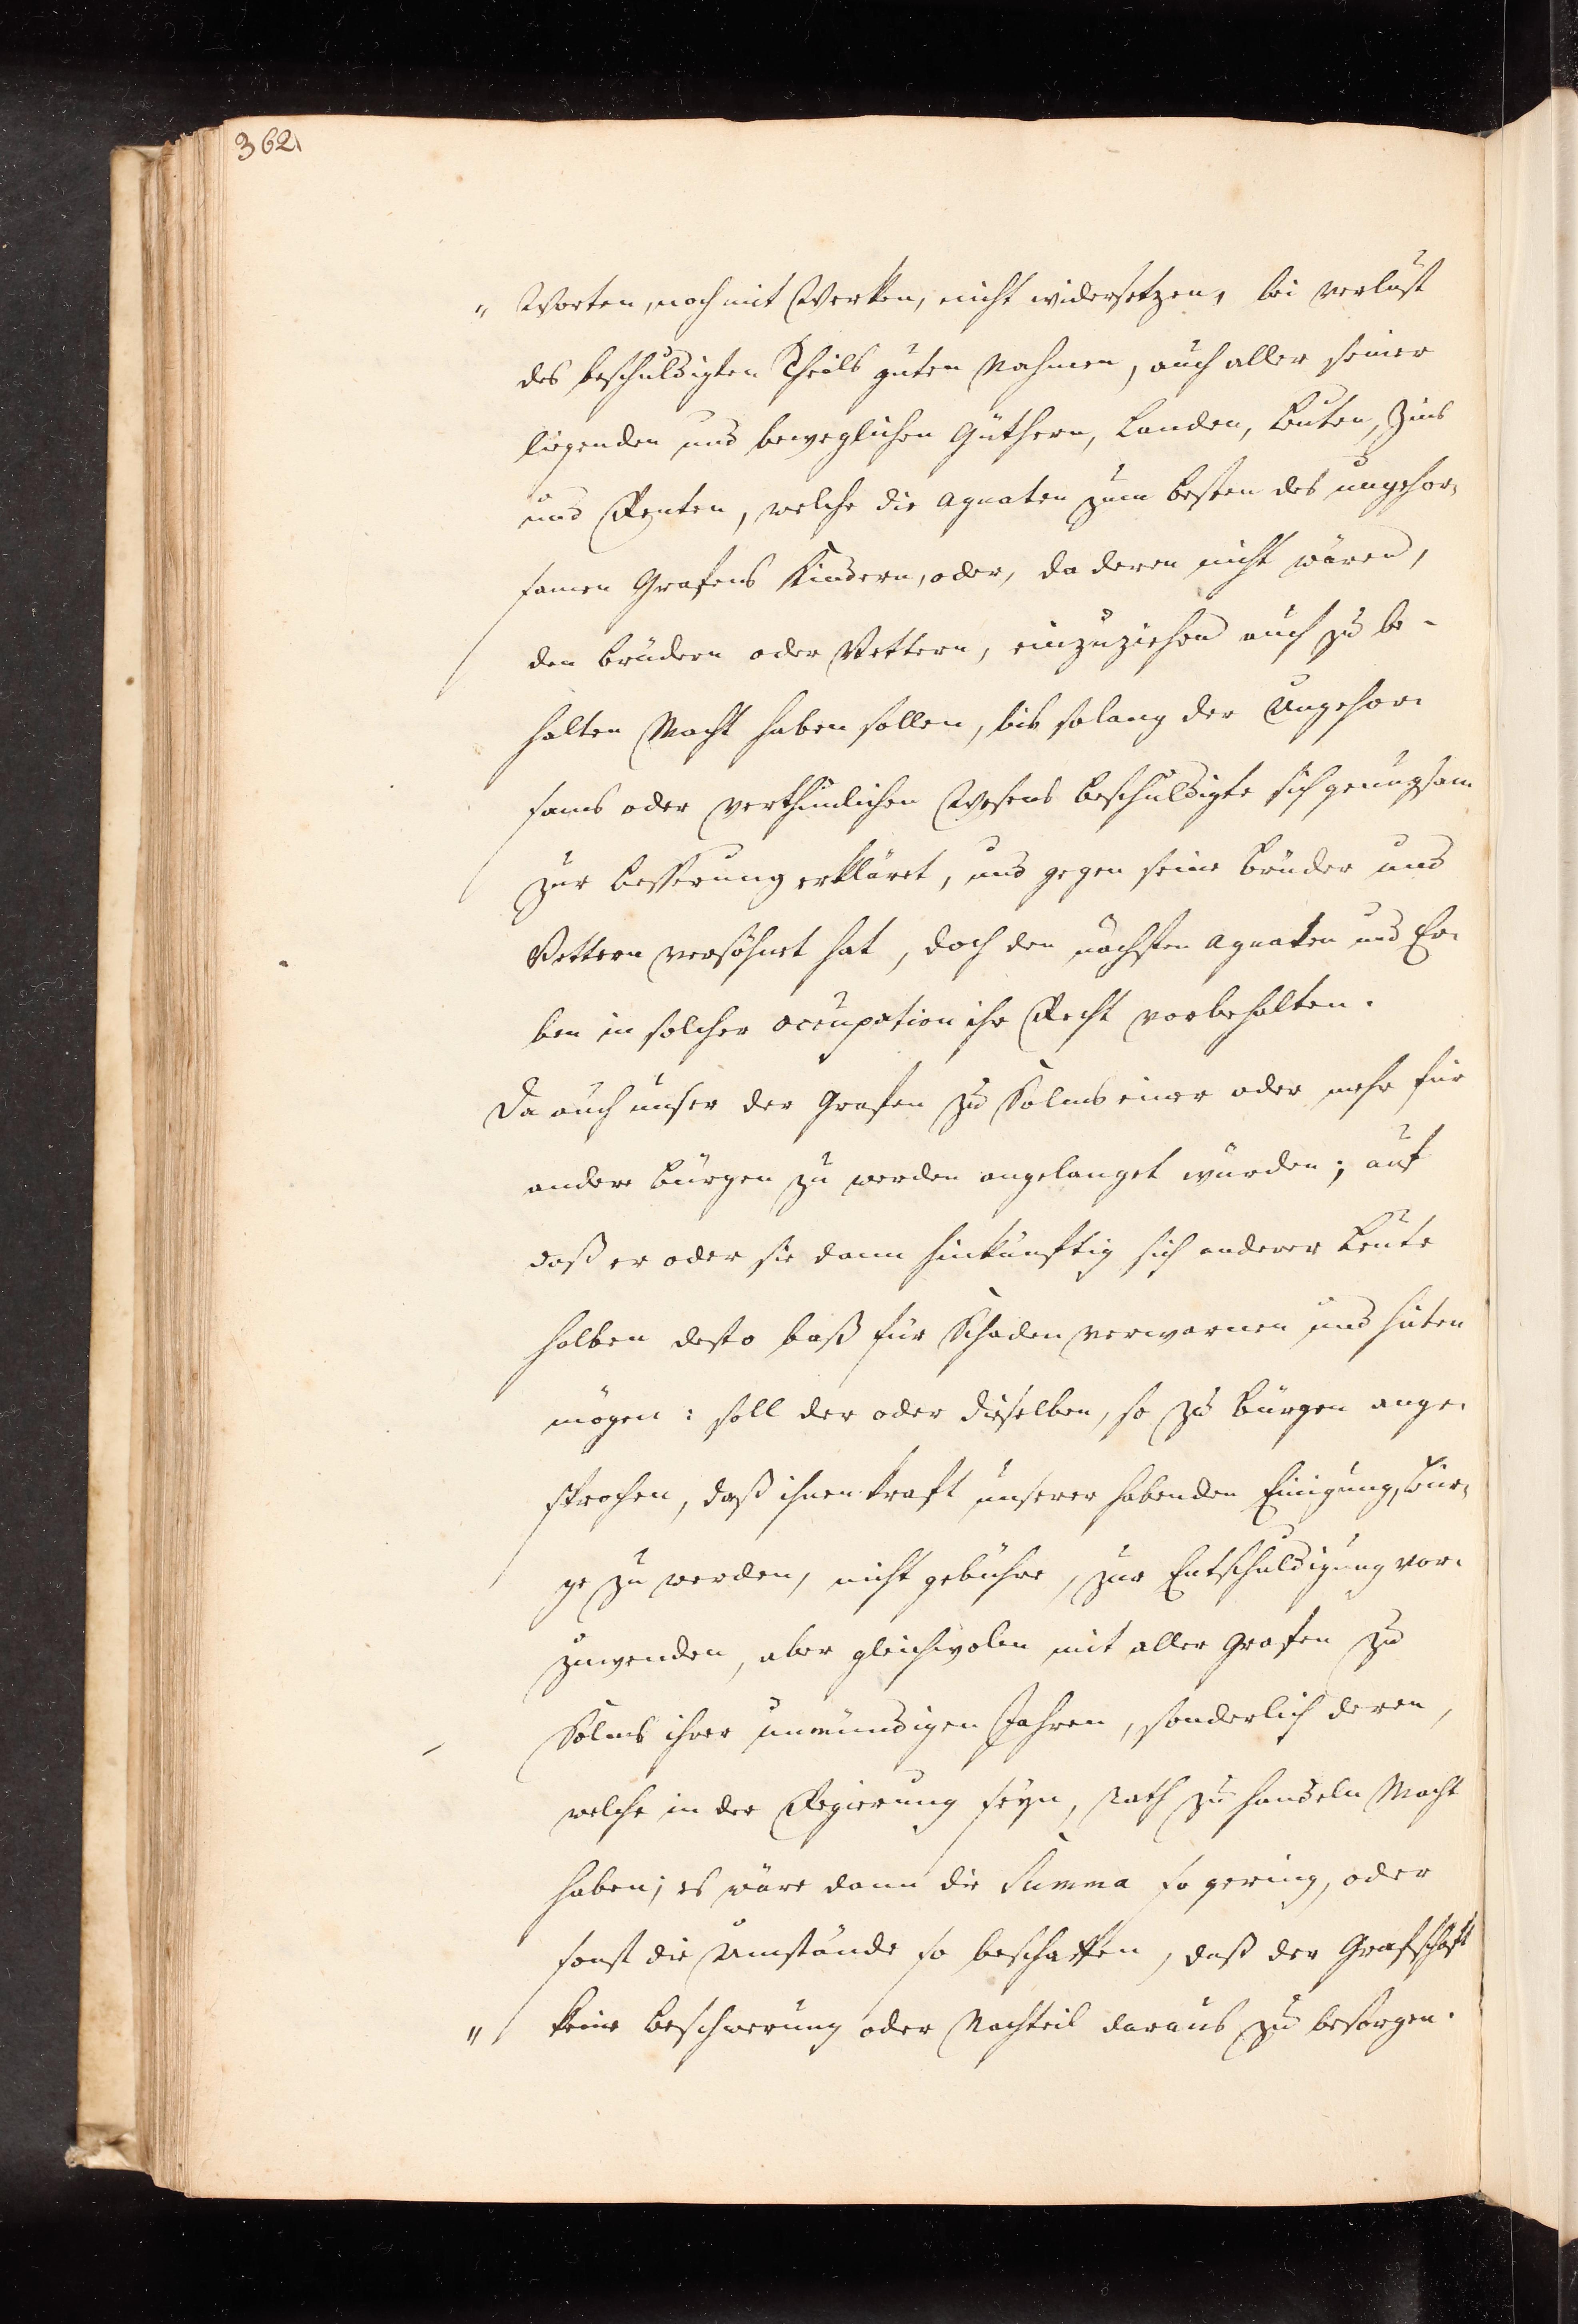 362.
„ Worten, noch mit Werken, nicht widersetzen, bei verlust
des beschuldigten Theils guten Nahmen, auch aller seiner
liegenden und beweglichen Güthern, Landen, Leuten, Zins
und Renten, welche die Agnaten zum besten des ungehor-
samen Grafens Kindern, oder, da deren nicht wären,
den brüdern oder Vettern, einzuziehen auch zu be-
halten Macht haben sollen, bis solang der Ungehor-
sams oder verthunlichen Wesens beschuldigte sich genugsam
zur besserung erkläret, und gegen seine brüder und
Vettern versöhnet hat, doch den nächsten Agnaten und Er-
ben in solcher occupation ihr Recht vorbehalten.
Da auch unser der Grafen zu Solms einer oder mehr für
andere bürgen zu werden angelanget würden; auf
daß er oder sie dann hinkünftig sich anderer Leute
halben desto baß für Schaden verwarnen und hüten
mögen: soll der oder dieselben, so zu bürgen ange-
sprochen, daß ihnen kraft unserer habenden Einigung, bür-
ge zu werden, nicht gebühre, zur Entschuldigung vor-
zuwenden, aber gleichwolen mit aller Grafen zu
Solms ihrer unmündigen Jahren, sonderlich deren,
welche in der Regierung seyn, Rath zu handeln Macht
haben; es wäre dann die Summa so gering, oder
sonst die Umstände so beschaffen, daß der Grafschaft
„ keine beschwerung oder Nachteil daraus zu besorgen.